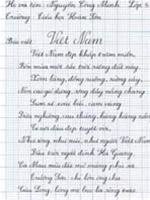 Họ và tên: Nguyễn Công Minh Lớp 5
Trường: Tiểu học Hoàn Sơn
Bài viết Việt Nam
Việt Nam đẹp khắp trăm miền,
Bốn mùa một sắc trời riêng đất này.
Xóm làng, đồng ruộng, rừng cây,
Non cao gió dựng, sông đầy nắng chang.
Sum sê xoài biếc, cam vàng
Dừa nghiêng, cau thẳng, hàng hàng nắng soi.
Có nơi đâu đẹp tuyệt vời,
Như sông, như núi, như người Việt Nam
Đầu trời ngất đỉnh Hà Giang
Cà Mau cuối đất mỡ màng phù sa
Trường Sơn: chí lớn ông cha
Cửu Long: lòng mẹ bao la sóng trào.